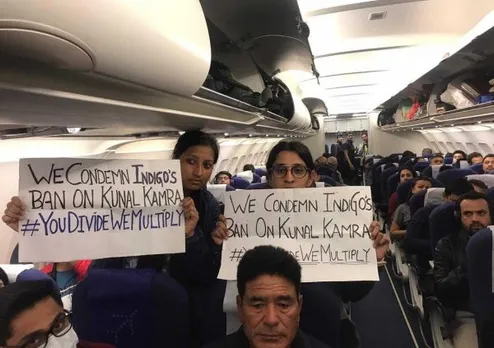 WE CONDEMN INDIGO'S
BAN ON KUNAL KAMRA
#YOUDIVIDEWEMULTIPLY
WE CONDEMN INDIGO'S
BAN ON KUNAL KAMRA
#YOUDIVIDEWEMULTIPLY